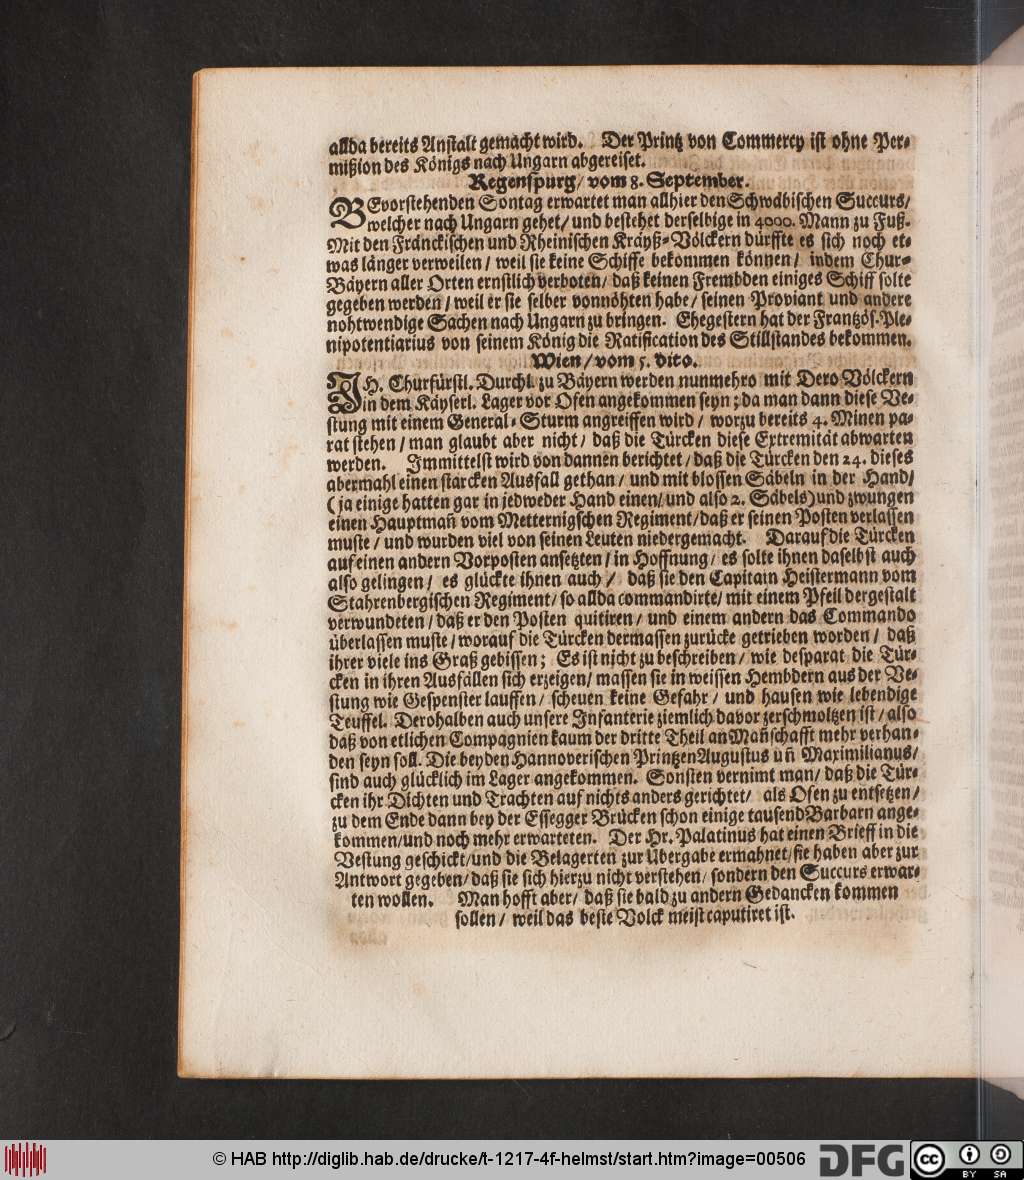 allda bereits Anstalt gemacht wird. Der Printz von Commercy ist ohne Per-
mißion des Königs nach Ungarn abgereiset.
Regenspurg/ vom 8. September.
BEvorstehenden Sontag erwartet man allhier den Schwäbischen Succurs/
welcher nach Ungarn gehet/ und bestehet derselbige in 4000. Mann zu Fuß.
Mit den Fränckischen und Rheinischen Kräyß-Völckern dürffte es sich noch et-
was länger verweilen/ weil sie keine Schiffe bekommen können/ indem Chur-
Bäyern aller Orten ernstlich verboten/ daß keinen Frembden einiges Schiff solte
gegeben werden/ weil er sie selber vonnöhten habe/ seinen Proviant und andere
nohtwendige Sachen nach Ungarn zu bringen. Ehegestern hat der Frantzös. Ple-
nipotentiarius von seinem König die Ratification des Stillstandes bekommen.
Wien/ vom 5. dito.
IH. Churfürstl. Durchl. zu Bäyern werden nunmehro mit Dero Völckern
in dem Käyserl. Lager vor Ofen angekommen seyn; da man dann diese Ve-
stung mit einem General-Sturm angreiffen wird/ worzu bereits 4. Minen pa-
rat stehen/ man glaubt aber nicht/ daß die Türcken diese Extremität abwarten
werden. Immittelst wird von dannen berichtet/ daß die Türcken den 24. dieses
abermahl einen starcken Ausfall gethan/ und mit blossen Säbeln in der Hand/
(ja einige hatten gar in jedweder Hand einen/ und also 2. Säbels) und zwungen
einen Hauptmañ vom Metternigschen Regiment/ daß er seinen Posten verlassen
muste/ und wurden viel von seinen Leuten niedergemacht. Darauf die Türcken
auf einen andern Vorposten ansetzten/ in Hoffnung/ es solte ihnen daselbst auch
also gelingen/ es glückte ihnen auch/ daß sie den Capitain Heistermann vom
Stahrenbergischen Regiment/ so allda commandirte/ mit einem Pfeil dergestalt
verwundeten/ daß er den Posten quitiren/ und einem andern das Commando
überlassen muste/ worauf die Türcken dermassen zurücke getrieben worden/ daß
ihrer viele ins Graß gebissen; Es ist nicht zu beschreiben/ wie desparat die Tür-
cken in ihren Ausfällen sich erzeigen/ massen sie in weissen Hembdern aus der Ve-
stung wie Gespenster lauffen/ scheuen keine Gefahr/ und hausen wie lebendige
Teuffel. Derohalben auch unsere Infanterie ziemlich davor zerschmoltzen ist/ also
daß von etlichen Compagnien kaum der dritte Theil an Mañschafft mehr verhan-
den seyn soll. Die beyden Hannoverischen Printzen Augustus uñ Maximilianus/
sind auch glücklich im Lager angekommen. Sonsten vernimt man/ daß die Tür-
cken ihr Dichten und Trachten auf nichts anders gerichtet/ als Ofen zu entsetzen/
zu dem Ende dann bey der Essegger Brücken schon einige tausend Barbarn ange-
kommen/ und noch mehr erwarteten. Der Hr. Palatinus hat einen Brieff in die
Vestung geschickt/ und die Belagerten zur Ubergabe ermahnet/ sie haben aber zur
Antwort gegeben/ daß sie sich hierzu nicht verstehen/ sondern den Succurs erwar-
ten wollen. Man hofft aber/ daß sie bald zu andern Gedancken kommen
sollen/ weil das beste Volck meist caputiret ist.
© HAB http://diglib.hab.de/drucke/t-1217-4f-helmst/start.htm?image=00506
DFG
cc BY SA